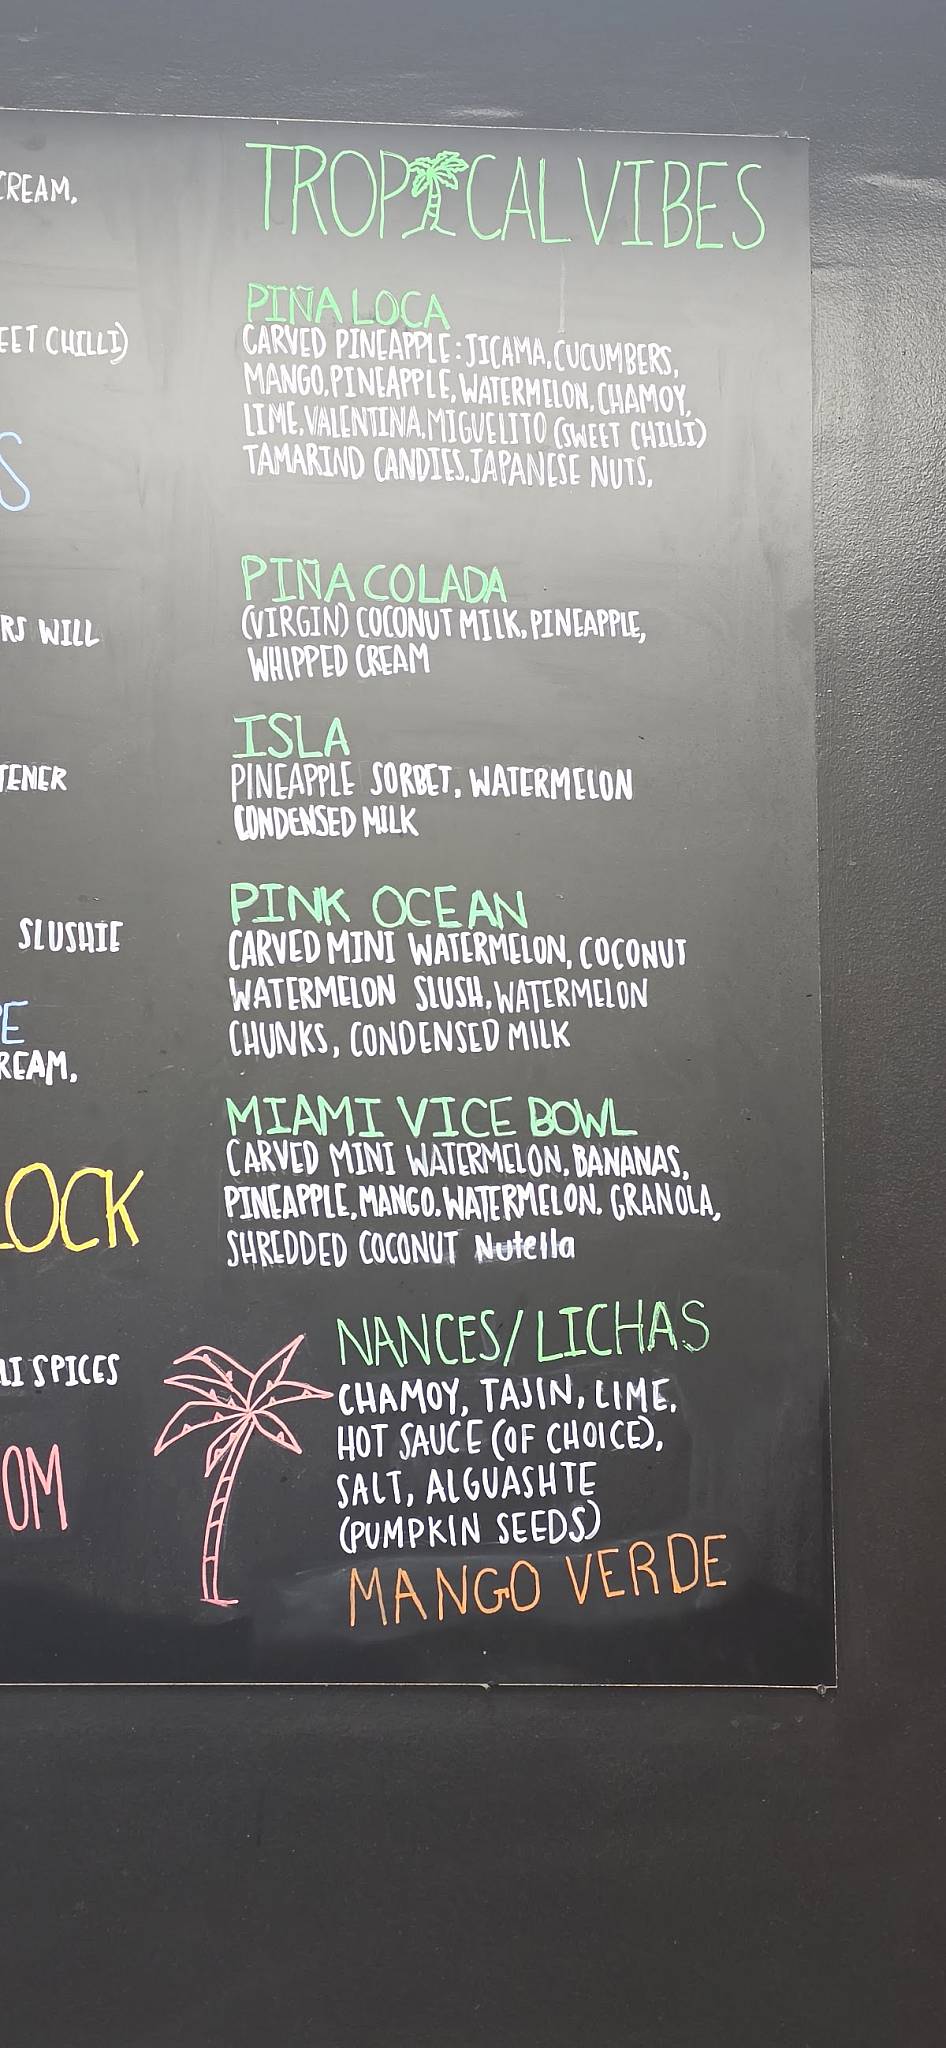 CREAM,
EET CHILLI)
S
RS WILL
TENER
SLUSHIE
E
REAM,
LOCK
LI SPICES
OM
TROPICAL VIBES
PIÑA LOCA
CARVED PINEAPPLE: JICAMA, CUCUMBERS,
MANGO, PINEAPPLE, WATERMELON, CHAMOY,
LIME, VALENTINA, MIGUELITO (SWEET CHILLI)
TAMARIND CANDIES, JAPANESE NUTS,
PIÑA COLADA
(VIRGIN) COCONUT MILK, PINEAPPLE,
WHIPPED CREAM
ISLA
PINEAPPLE SORBET, WATERMELON
CONDENSED MILK
PINK OCEAN
CARVED MINI WATERMELON, COCONUT
WATERMELON SLUSH, WATERMELON
CHUNKS, CONDENSED MILK
MIAMI VICE BOWL
CARVED MINI WATERMELON, BANANAS,
PINEAPPLE, MANGO, WATERMELON, GRANOLA,
SHREDDED COCONUT Nutella
NANCES/LICHAS
CHAMOY, TAJIN, LIME,
HOT SAUCE (OF CHOICE),
SALT, ALGUASHTE
(PUMPKIN SEEDS)
MANGO VERDE